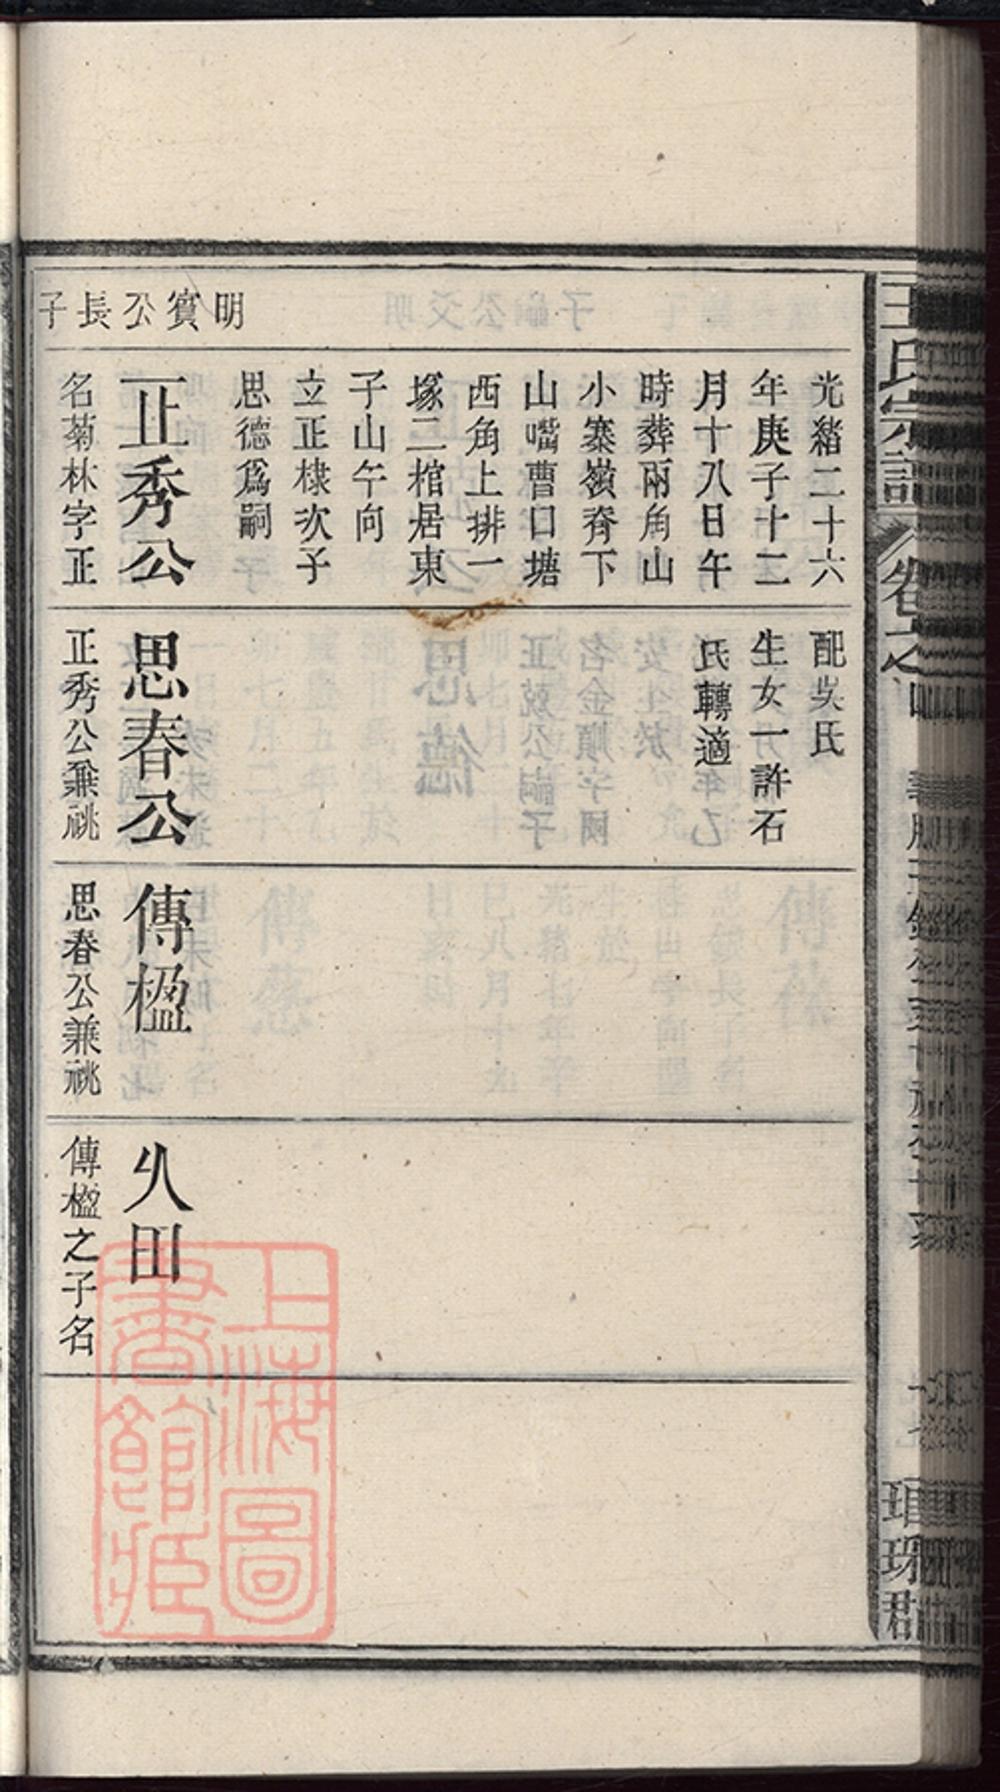 明賓公長子
光緒二十六
年庚子十二
月十八日午
時葬兩角山
小寨嶺脊下
山嘴曹口塘
西角上排一
塚二棺居東
子山午向
立正棣次子
思德爲嗣
正秀公
名菊林字正
配吳氏
生女一許石
氏轉適
思春公
正秀公兼祧
傳楹
思春公兼祧
乆田
傳楹之子名
王氏宗譜
卷之四
上海圖
書館藏